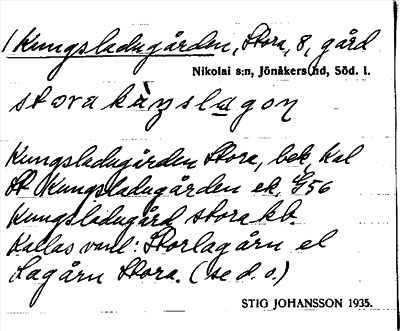 1 Kungsladugården, Stora, 8, gård
Nikolai s:n, Jönåkers hd, Söd. l.
stora kàŋslagon
Kungsladugården Stora, bek. Kal
St Kungsladugården ek. G56
Kungsladugård stora kb.
Kallas vanl: Storlagårn el
Lagårn Stora. (se d. o.)
STIG JOHANSSON 1935.